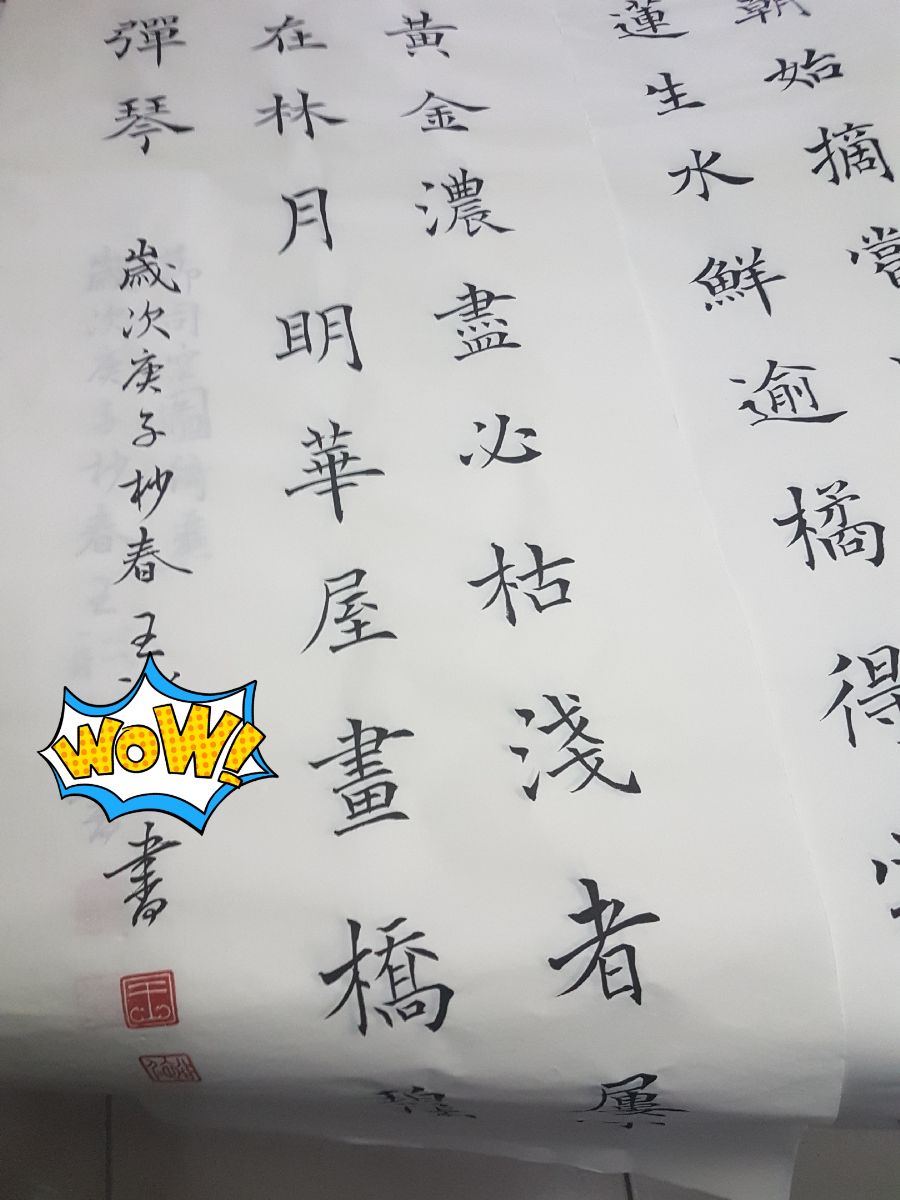 朝始摘嘗
蓮生水鮮逾橘得
黃金濃盡必枯淺者屢
在林月明華屋畫橋碧
彈琴
歲次庚子杪春王
WOW!
書